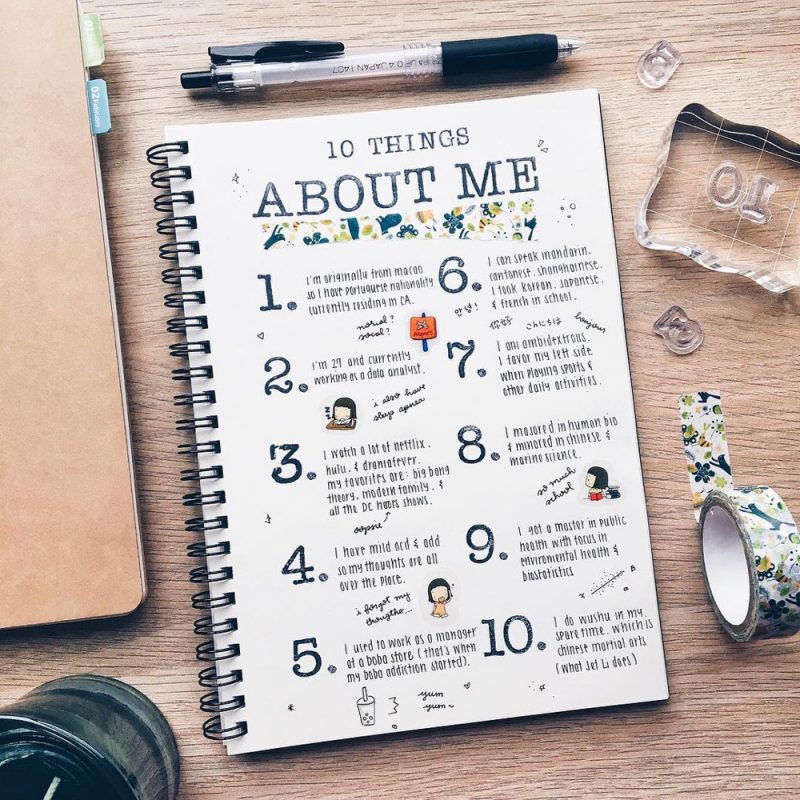 10 THINGS
ABOUT ME
1. I'm originally from macao
so I have portuguese nationality.
currently residing in CA.
norcal?
socal?
Airport
2. I'm 29 and currently
working as a data analyst.
i also have
sleep apnea
3. I watch a lot of netflix.
hulu. & dramafever.
my favorites are: big bang
theory. modern family. &
all the DC shows.
oopsie
4. I have mild ocd & add
so my thoughts are all
over the place.
i forgot my
thoughts...
5. I used to work as a manager
at a boba store (that's when
my boba addiction started).
yum
yum~
6. I can speak mandarin.
cantonese. shanghainese.
I took korean. japanese.
& french in school.
안녕!
你好
こんにちは
bonjour
7. I am ambidextrous.
I favor my left side
when playing sports &
other daily activities.
8. I majored in human bio
& minored in chinese &
marine science.
so much
school
9. I got a master in public
health with focus in
enviromental health &
biostatistics
10. I do wushu in my
spare time. which is
chinese martial arts
(what Jet Li does)
0.4 JAPAN 1407
02 February
10